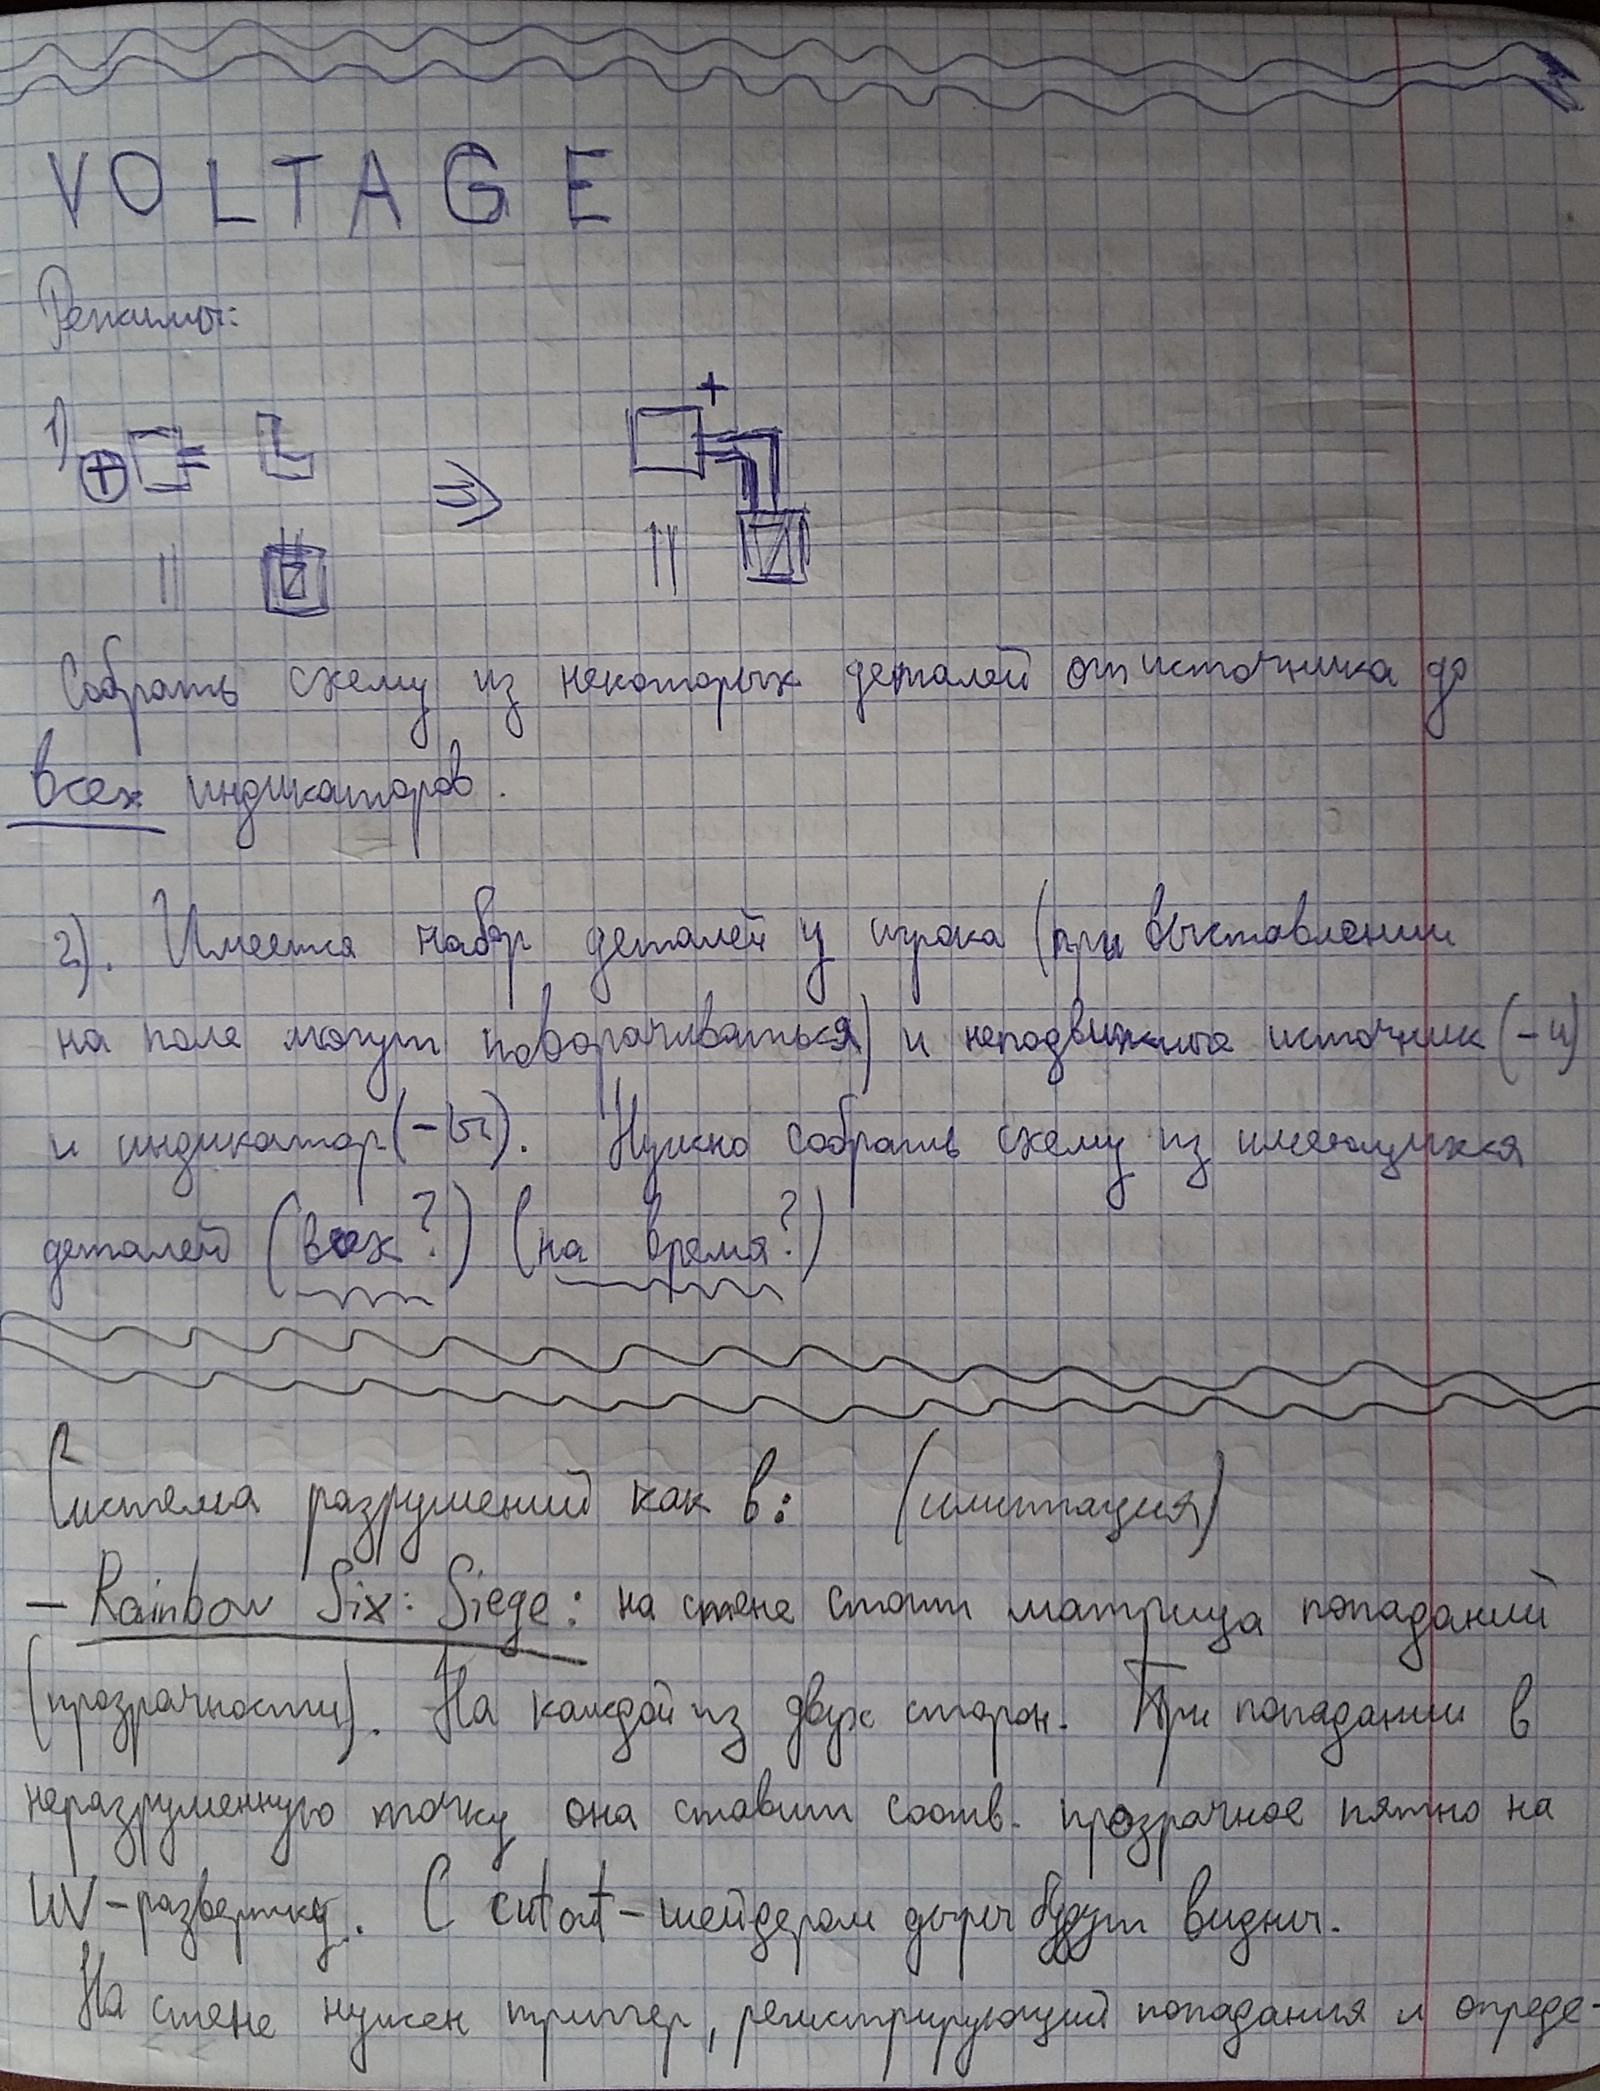 VOLTAGE
Режимы:
1)
+
+
Собрать схему из некоторых деталей от источника до
всех индикаторов.
2). Имеется набор деталей у игрока (при выставлении
на поле могут поворачиваться) и неподвижные источник (-и)
и индикатор (-ы). Нужно собрать схему из имеющихся
деталей (всех?) (на время?)
Система разрушений как в: (имитация)
- Rainbow Six: Siege: на стене стоит матрица попаданий
(прозрачности). На каждой из двух сторон. При попадании в
неразрушенную точку она ставит соотв. прозрачное пятно на
UV-развертку. С cutout-шейдером дыры будут видны.
На стене нужен триггер, регистрирующий попадания и опреде-